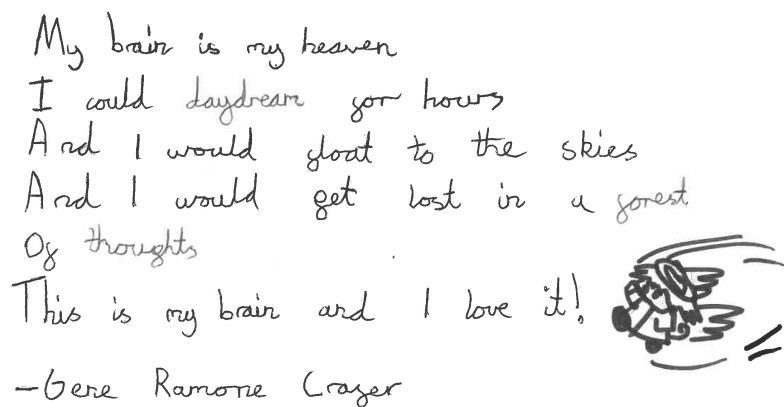 My brain is my heaven
I could daydream for hours
And I would float to the skies
And I would get lost in a forest
Of thoughts
This is my brain and I love it!
-Gene Ramone Crager